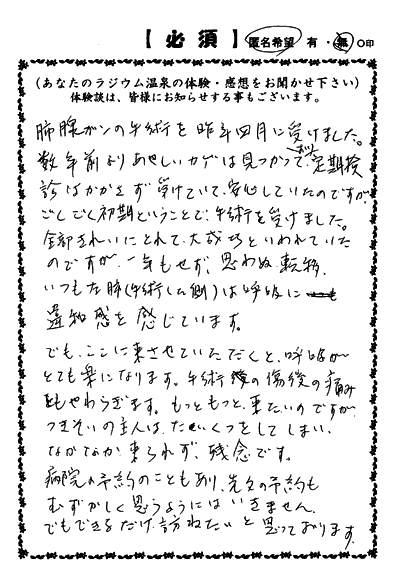 【必須】 匿名希望 有・無 ○印
（あなたのラジウム温泉の体験・感想をお聞かせ下さい）
体験談は、皆様にお知らせする事もございます。
肺腺ガンの手術を昨年四月に受けました。
数年前よりあやしいカゲは見つかっており定期検
診はかかさず受けていて、安心していたのですが、
ごくごく初期ということで、手術を受けました。
全部きれいにとれて、大成功といわれていた
のですが、一年もせず、思わぬ転移、
いつも左肺(手術した側)は呼吸に
違和感を感じています。
でも、ここに来させていただくと、呼吸が
とても楽になります。手術後の傷後の痛み
もやわらぎます。もっともっと、来たいのですが、
つきそいの主人は、たいくつをしてしまい、
なかなか来られず、残念です。
病院の予約のこともあり、先々の予約も
むずかしく思うようにはいきません。
でもできるだけ訪ねたいと思っております。